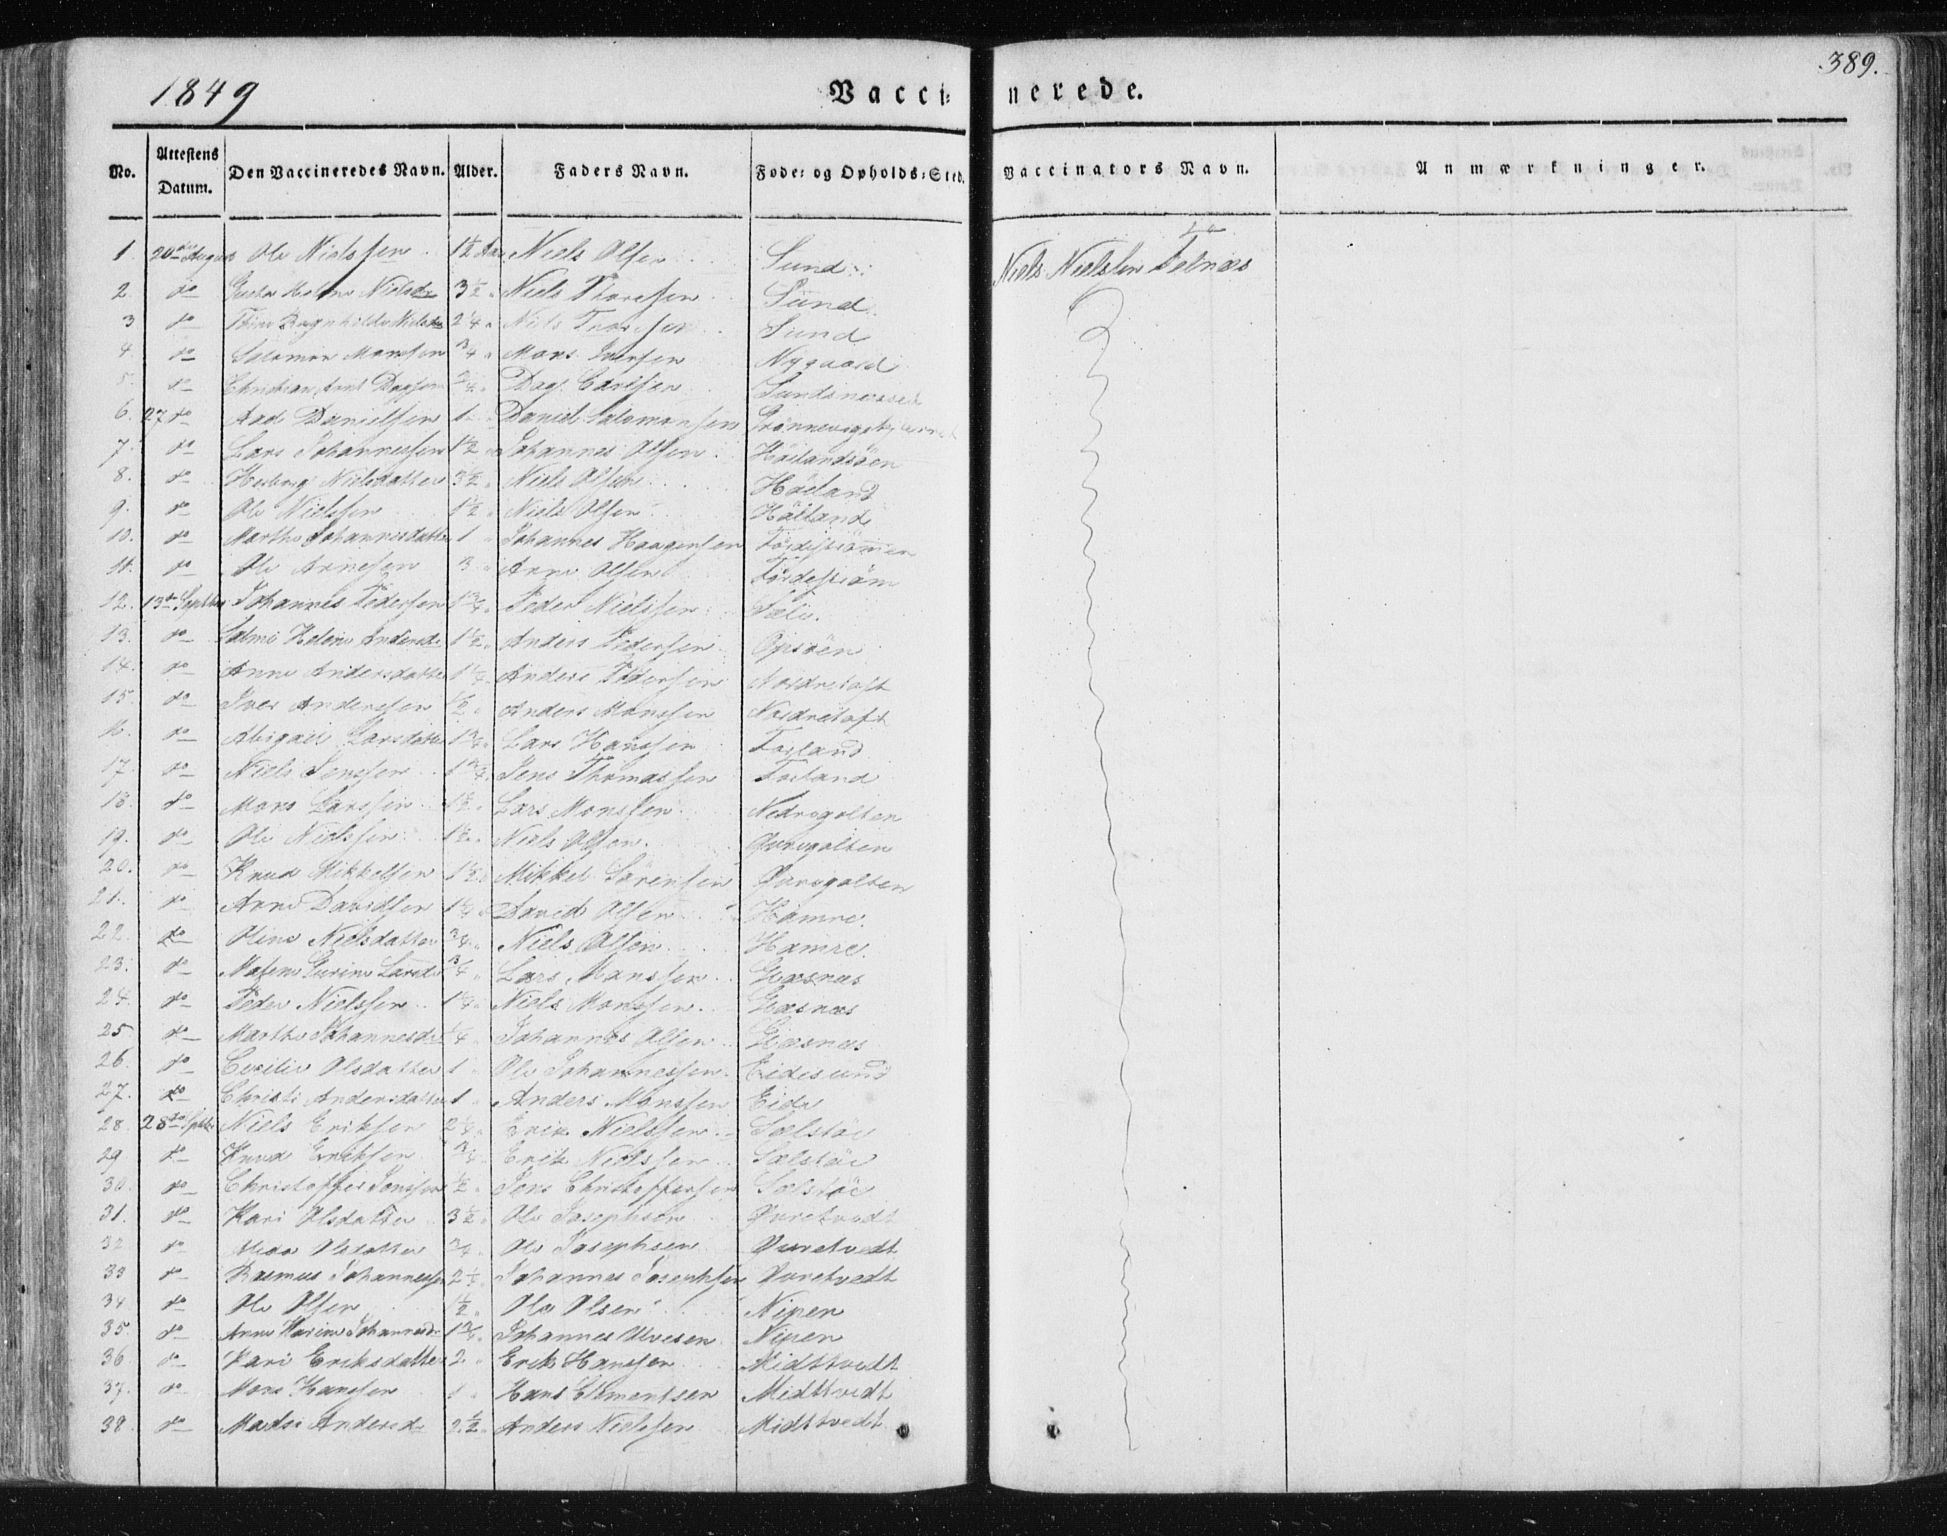 389.
1849 Vaccinerede.
No. Attestens Datum. Den Vaccineredes Navn. Alder. Faders Navn. Føde- og Opholds-Sted. Vaccinators Navn. Anmærkninger.
1. 20de August Ole Nielssen 1½ Aar Niels Olsen Sund Niels Nielssen
2. do Helene Nielsdr 3½ " Niels Thoressen Sund
3 do Ragnhilda Nielsdr 2¼ " Niels Thoressen Sund
4 do Salamon Monssen ¾ " Mons Iversen Nygaard
5. do Christian Dagssen Dag Sundsnæsset
6. 27 do Aad Danielssen 1 Daniel Salamonssen
7. do Lars Johannessen 1½ Johannes Olsen Höilandsöen
8. do Nielsdatter 3½ " Niels Olsen Höiland
9. do Ole Nielssen 1½ Niels Olsen Höiland
10. do Marthe Johannesdatter 1 " Johannes Haagensen Fördeströmmen
11. do Ole Arnesen 3 " Arne Olsen Fördeström
12. 13de Septber Johannes Pedersen 1¾ Peder Nielssen
13. do Helene Andersdr 1½ " Anders Pedersen Opsöen
14. do Anne Andersdatter 1¼ Anders Pedersen Nordretoft
15. do Iver Anderssen ½ " Anders Monssen Nordretoft
16. do Abigael Larsdatter 1¾ " Lars Hanssen Forland
17. do Niels Jenssen 1¾ " Jens Thomassen Forland
18. do Mons Larssen 1½ " Lars Monssen Nedregolten
19. do Ole Nielssen 1½ " Niels Olsen Øvregolten
20. do Knud Mikkelsen 1½ Mikkel Sörensen Øvregolten
21. do Arne Davidsen 1¼ David Olsen Hamre.
22. do Oline Nielsdatter ¾ " Niels Olsen Hamre.
23. do Gurine Larsdr ¾ " Lars Hanssen Glæsnæs
24. do Peder Nielssen 1¼ " Niels Monssen Glæsnæs
25 do Marthe Johannesdr ¼ " Johannes Olsen Glæsnæs
26. do Cecilie Olsdatter 1 " Ole Johannessen Eidesund
27. do Christi Andersdatter 1 " Anders Monssen Eide
28. 28de Septbr Niels Eriksen 2¼ " Erik Nielssen Sælstöe
29 do Knud Eriksen ¾ " Erik Nielssen Sælstöe
30. do Christoffer Jonssen ½ " Jons Christoffersen Sælstöe
31. do Kari Olsdatter 3½ " Ole Josephsen Øvretvedt
32. do Olsdatter ¾ " Ole Josephsen Øvretvedt
33 do Rasmus Johannessen 2½ " Johannes Josephsen Øvretvedt
34 do Ole Olsen 1½ " Ole Olsen Nipen
35. do Anne Karine Johannesdr 1¾ " Johannes Nipen
36 do Kari Eriksdatter 2 " Erik Hanssen Midttvedt
37. do Mons Hanssen 1 " Hans Clementsen Midttvedt
38 do Andersdr 2½ " Anders Nielssen Midttvedt